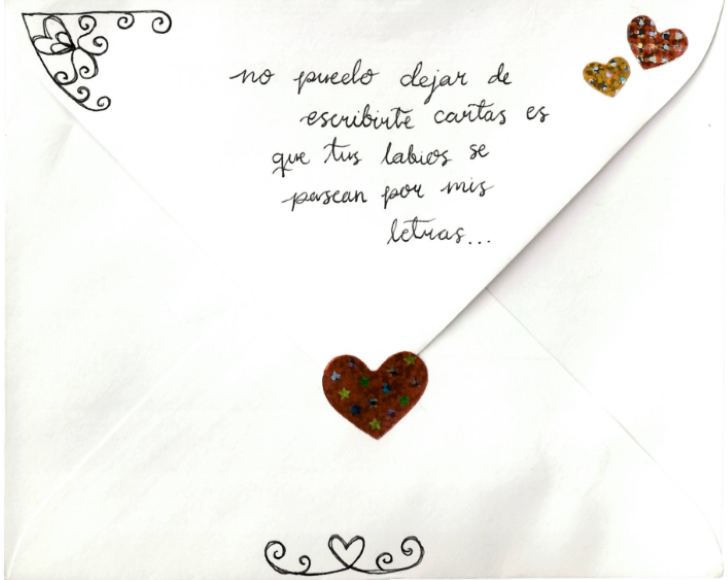 no puedo dejar de
escribirte cartas es
que tus labios se
pasean por mis
letras...